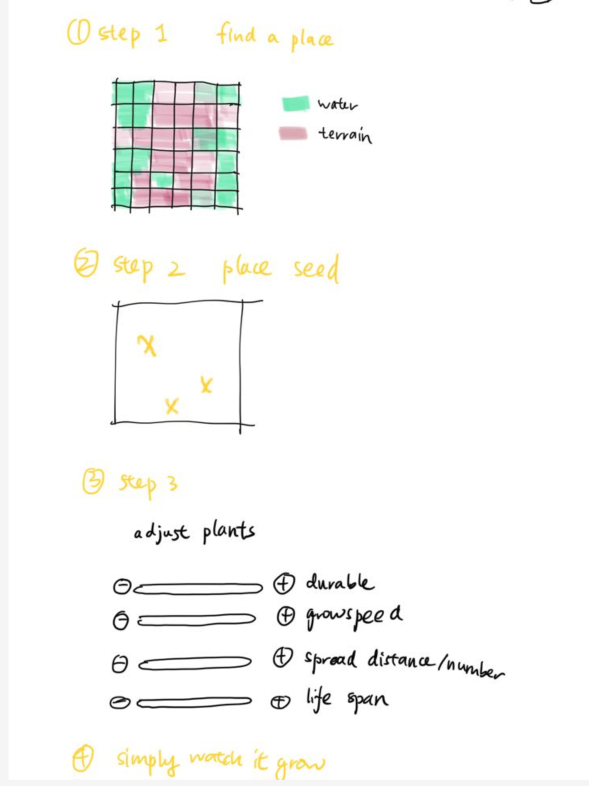 ① step 1 find a place
water
terrain
② step 2 place seed
x
x
x
③ step 3
adjust plants
⊖ ⊕ durable
⊖ ⊕ growspeed
⊖ ⊕ spread distance/number
⊖ ⊕ life span
④ simply watch it grow